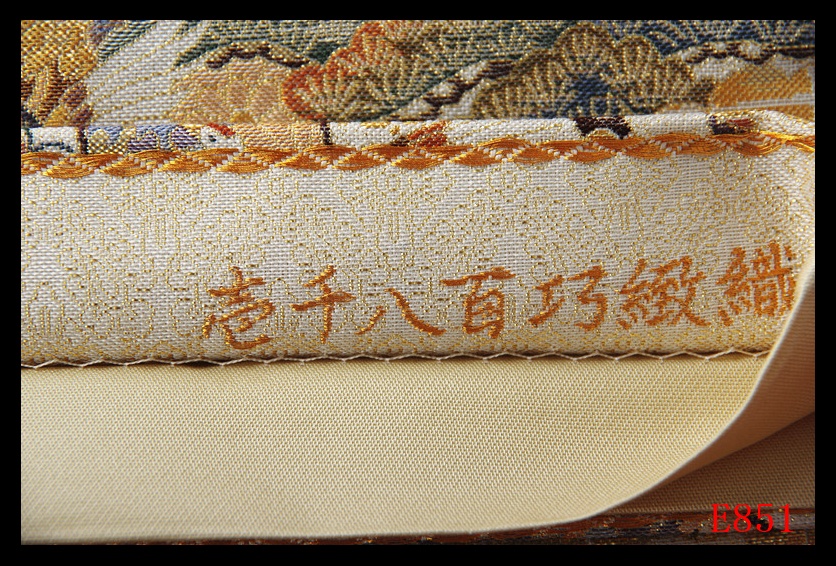 壱千八百巧緻織
E851